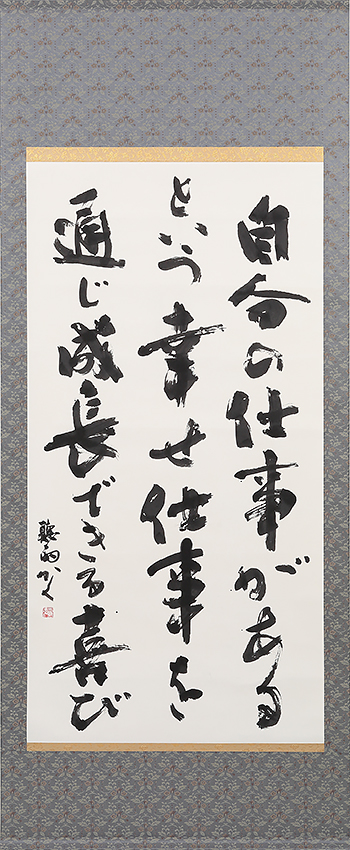 自分の仕事がある
という幸せ仕事を
通じ成長できる喜び